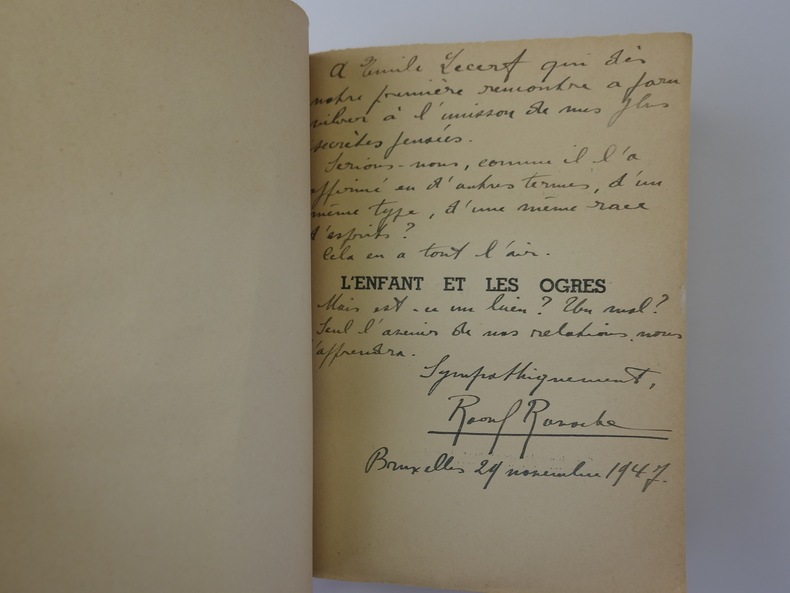 A Emile Lecerf qui dès
notre première rencontre a paru
vibrer à l'unisson de mes plus
secrètes pensées.
Serions-nous, comme il l'a
affirmé en d'autres termes, d'un
même type, d'une même race
d'esprits?
Cela en a tout l'air.
L'ENFANT ET LES OGRES
Mais est-ce un bien? Un mal?
Seul l'avenir de nos relations nous
l'apprendra.
Sympathiquement,
Raoul
Bruxelles 29 novembre 1947.